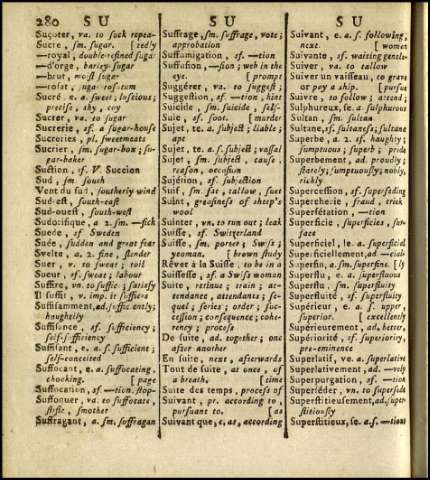 280 S U
S U
S U
Suçoter, va. to suck repea-
Sucre, sm. sugar. [tedly
—royal, double-refined sugar
—d'orge, barley-sugar
—brut, moist sugar
—rosat, sugar-rosatum
Sucré e. a. sweet; luscious;
precise, shy, coy
Sucrer, va. to sugar
Sucrerie, sf. a sugar-house
Sucreries, pl. sweetmeats
Sucrier, sm. sugar-box; su-
gar-baker
Suction, sf. V. Succion
Sud, sm. south
Vent du sud, southerly wind
Sud-est, south-east
Sud-ouest, south-west
Sudorifique, a 2. sm. —fick
Suède, sf. Sweden
Suée, sudden and great fear
Svelte, a 2. fine, slender
Suer, v. to sweat; toil
Sueur, sf. sweat; labour
Suffire, vn. to suffice; satisfy
Il suffit, v. imp. it suffices
Suffisamment, ad. sufficiently;
haughtily
Suffisance, sf. sufficiency;
self-sufficiency
Suffisant, e. a. s. sufficient;
self-conceited
Suffocant, e. a. suffocating,
choaking. [page
Suffocation, sf. —tion, stop-
Suffoquer, va. to suffocate,
stifle, smother
Suffragant, a. sm. suffragan
Suffrage, sm. suffrage, vote;
approbation
Suffumigation, sf. —tion
Suffusion, —sion; web in the
eye. [prompt
Suggérer, va. to suggest;
Suggestion, sf. —tion, hint
Suicide, sm. suicide, self-
Suie, sf. soot. [murder
Sujet, te. a. subject; liable;
apt
Sujet, te. a. s. subject; vassal
Sujet, sm. subject, cause,
reason, occasion
Sujétion, sf. subjection
Suif, sm. fat, tallow, suet
Suint, greasiness of sheep's
wool
Suinter, vn. to run out; leak
Suisse, sf. Switzerland
Suisse, sm. porter; Swiss;
yeoman. [brown study
Rêver à la Suisse, to be in a
Suissesse, sf. a Swiss woman
Suite, retinue; train; at-
tendance, attendants; se-
quel; series; order; suc-
cession; consequence; cohe-
rency; process
De suite, ad. together; one
after another
En suite, next, afterwards
Tout de suite, at once, of
a breath. [time
Suite des temps, process of
Suivant, pr. according to,
pursuant to. [as
Suivant que, c. as, according
Suivant, e. a. s. following;
next. [women
Suivante, sf. waiting gentle-
Suiver, va. to tallow
Suiver un vaisseau, to grave
or pay a ship. [pursue
Suivre, to follow; attend;
Sulphureux, se a. sulphurous
Sultan, sm. sultan
Sultane, sf. sultana; sultane
Superbe, a 2. sf. haughty;
sumptuous; superb; pride
Superbement, ad. proudly;
stately; sumptuously; nobly,
richly
Supercession, sf. superseding
Supercherie, fraud, trick
Superfétation, —tion
Superficie, superficies, sur-
face
Superficiel, le a. superficial
Superficiellement, ad —cially
Superfin, a. sm. superfine. [ly
Superflu e. a. superfluous
Superflu, sm. superfluity
Superfluité, sf. superfluity
Supérieur, e. a. s. upper,
superior. [excellently
Supérieurement, ad. better,
Supériorité, sf. superiority,
pre-eminence
Superlatif, ve. a. superlative
Superlativement, ad. —vely
Superpurgation, sf. —tion
Superséder, vn. to supersede
Superstitieusement, ad. super-
stitiously
Superstitieux, se. a. s. —tious